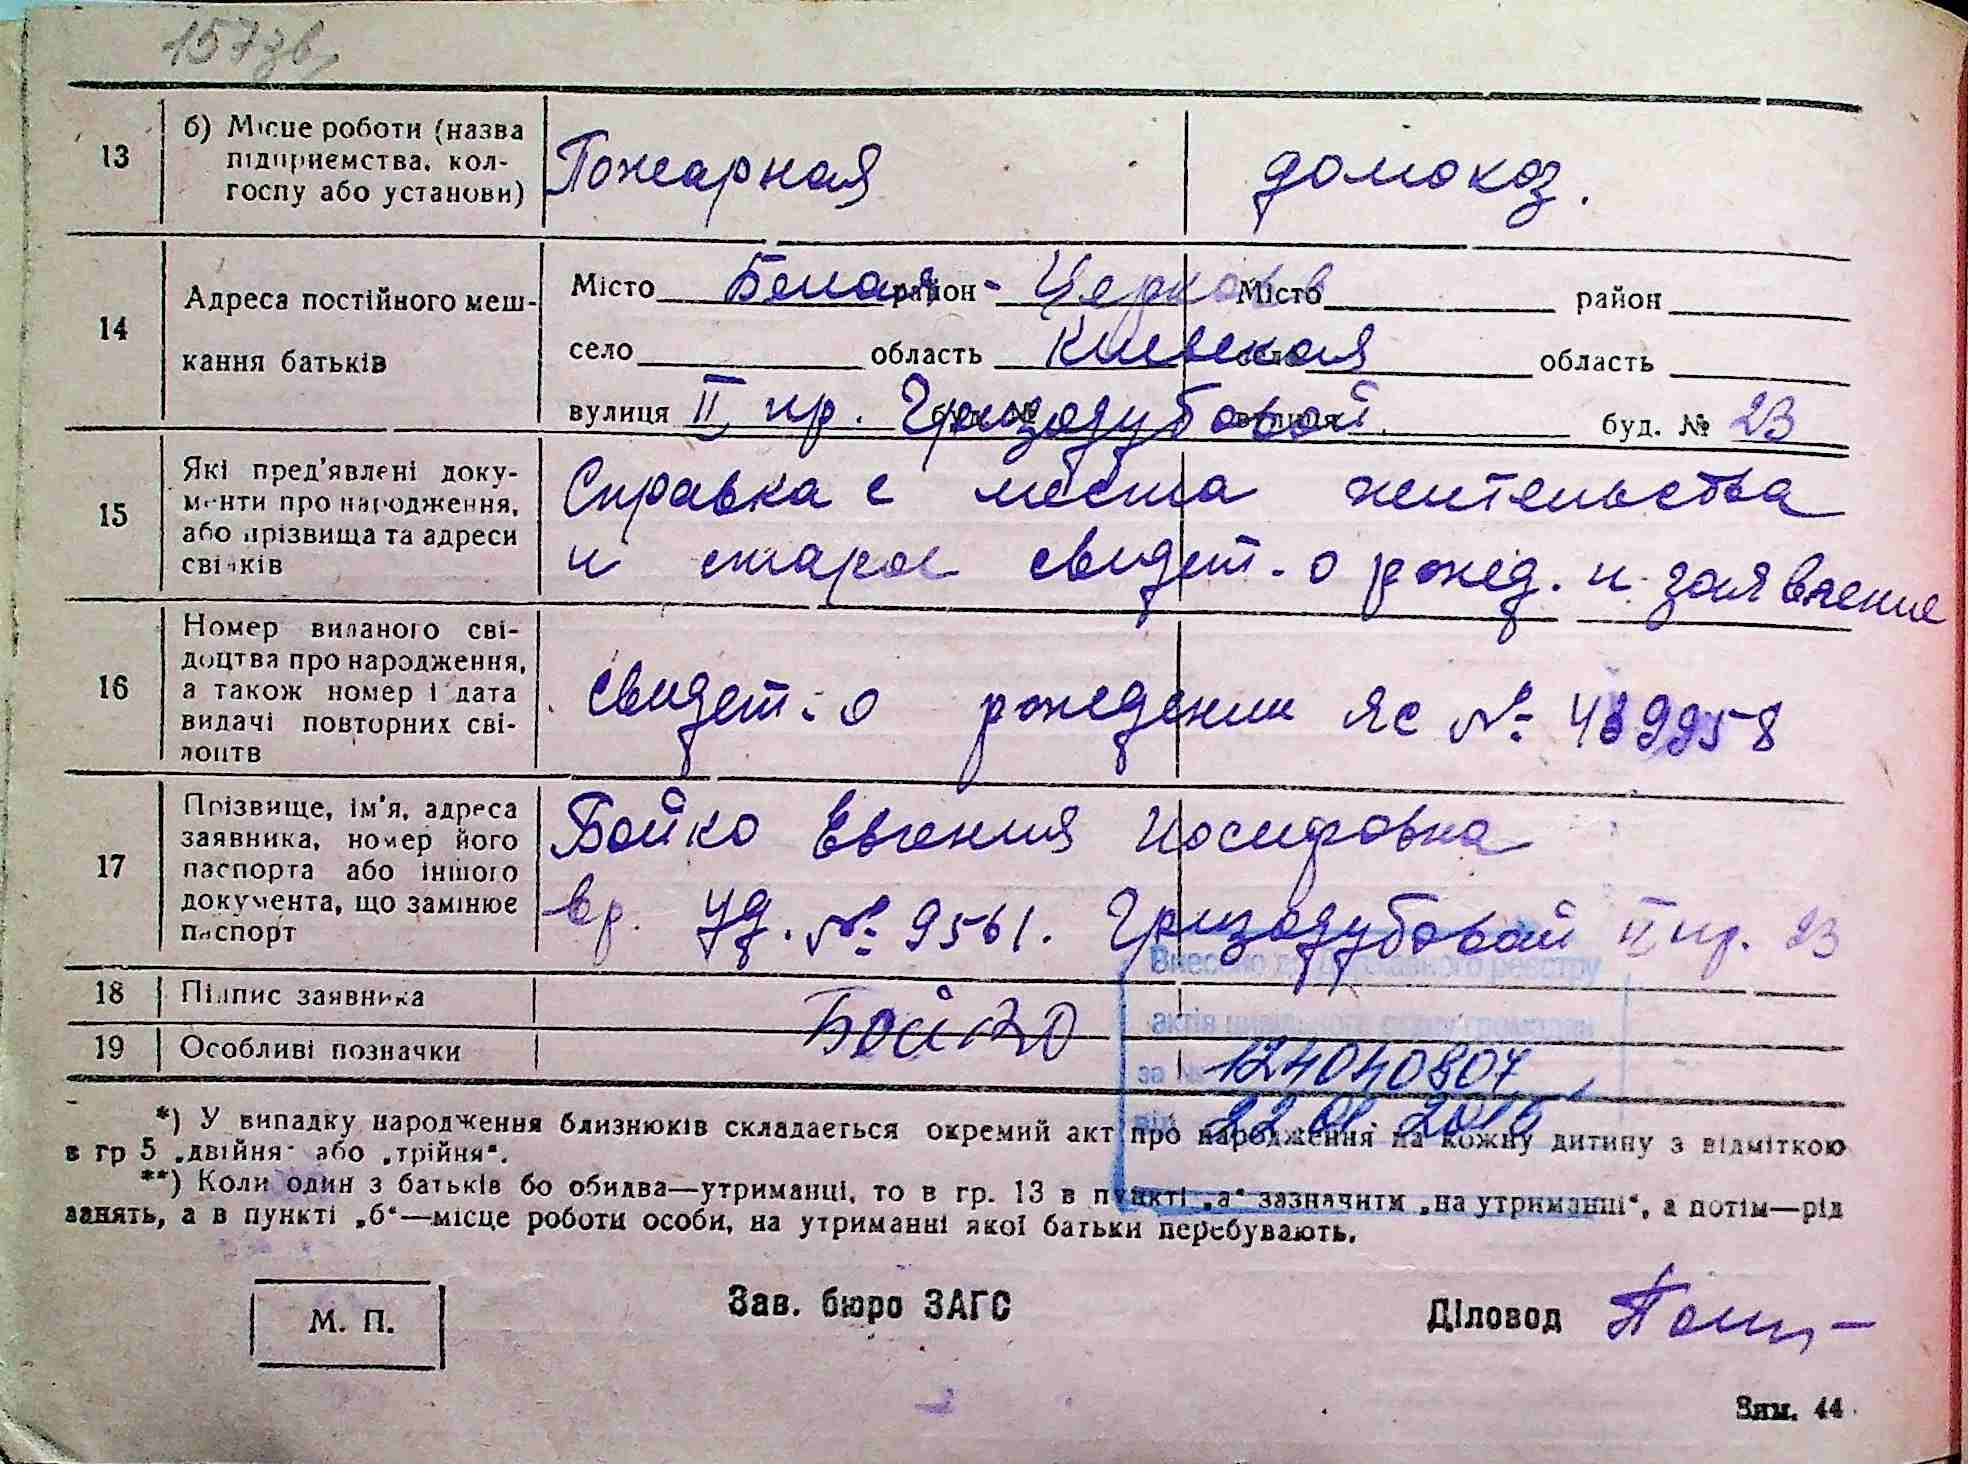 157зв
13 б) Місце роботи (назва підприємства, колгоспу або установи) Пожарная домохоз.
14 Адреса постійного мешкання батьків
Місто Белая район - Церковь Місто район
село область Киевская село область
вулиця II пр. Гризодубовой буд. № вулиця буд. № 23
15 Які пред'явлені документи про народження, або прізвища та адреси свідків
Справка с места жительства
и старое свидет. о рожд. и заявление
16 Номер виданого свідоцтва про народження, а також номер і дата видачі повторних свідоцтв
свидет. о рождении ЯС № 439958
17 Прізвище, ім'я, адреса заявника, номер його паспорта або іншого документа, що замінює паспорт
Бойко Евгения Иосифовна
вр. уд. № 9561. Гризодубовой II пр. 23
18 Підпис заявника Бойко
19 Особливі позначки
Внесено до Державного реєстру
актів цивільного стану громадян
за № 124040807
від 22.01.2015
*) У випадку народження близнюків складається окремий акт про народження на кожну дитину з відміткою
в гр 5 „двійня" або „трійня".
**) Коли один з батьків бо обидва—утриманці, то в гр. 13 в пункті „а" зазначити „на утриманні", а потім—рід
занять, а в пункті „б"—місце роботи особи, на утриманні якої батьки перебувають.
М. П.
Зав. бюро ЗАГС
Діловод
Зам. 44